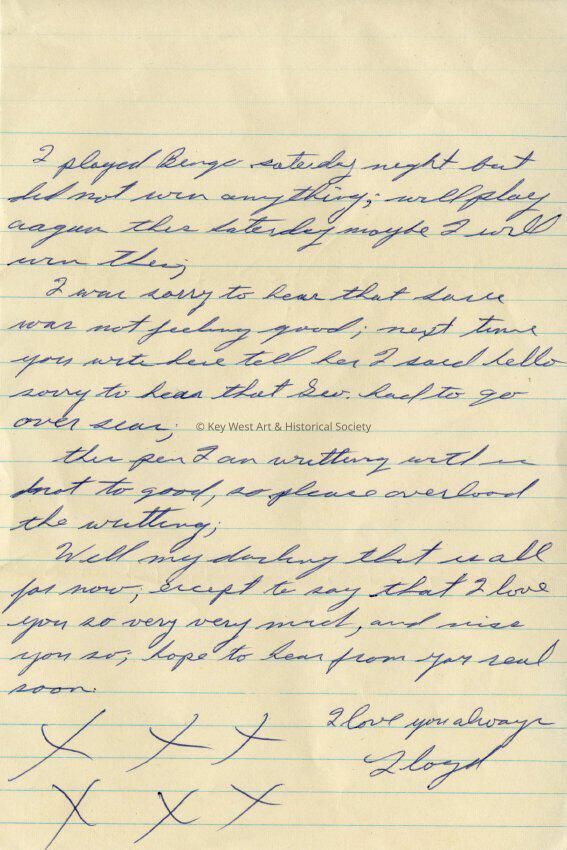 I played Bingo saterday night but
did not win anything; will play
aagun this saterday maybe I will
win this;
I was sorry to hear that
was not feeling good; next time
you write here tell her I said hello
sorry to hear that Geo. had to go
over seas;
© Key West Art & Historical Society
this pen I am writting with is
not to good, so please overlood
the writting;
Well my darling that is all
for now, except to say that I love
you so very very much, and miss
you so; hope to hear from you real
soon.
I love you always
Lloyd
X X X
X X X